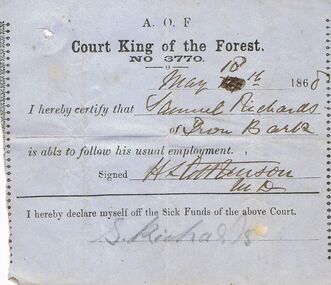 A. O. F
Court King of the Forest.
NO 3770.
May 18th 1868
I hereby certify that Samuel Richards
of Iron Bark
is able to follow his usual employment.
Signed
M D
I hereby declare myself off the Sick Funds of the above Court.
S. Richards